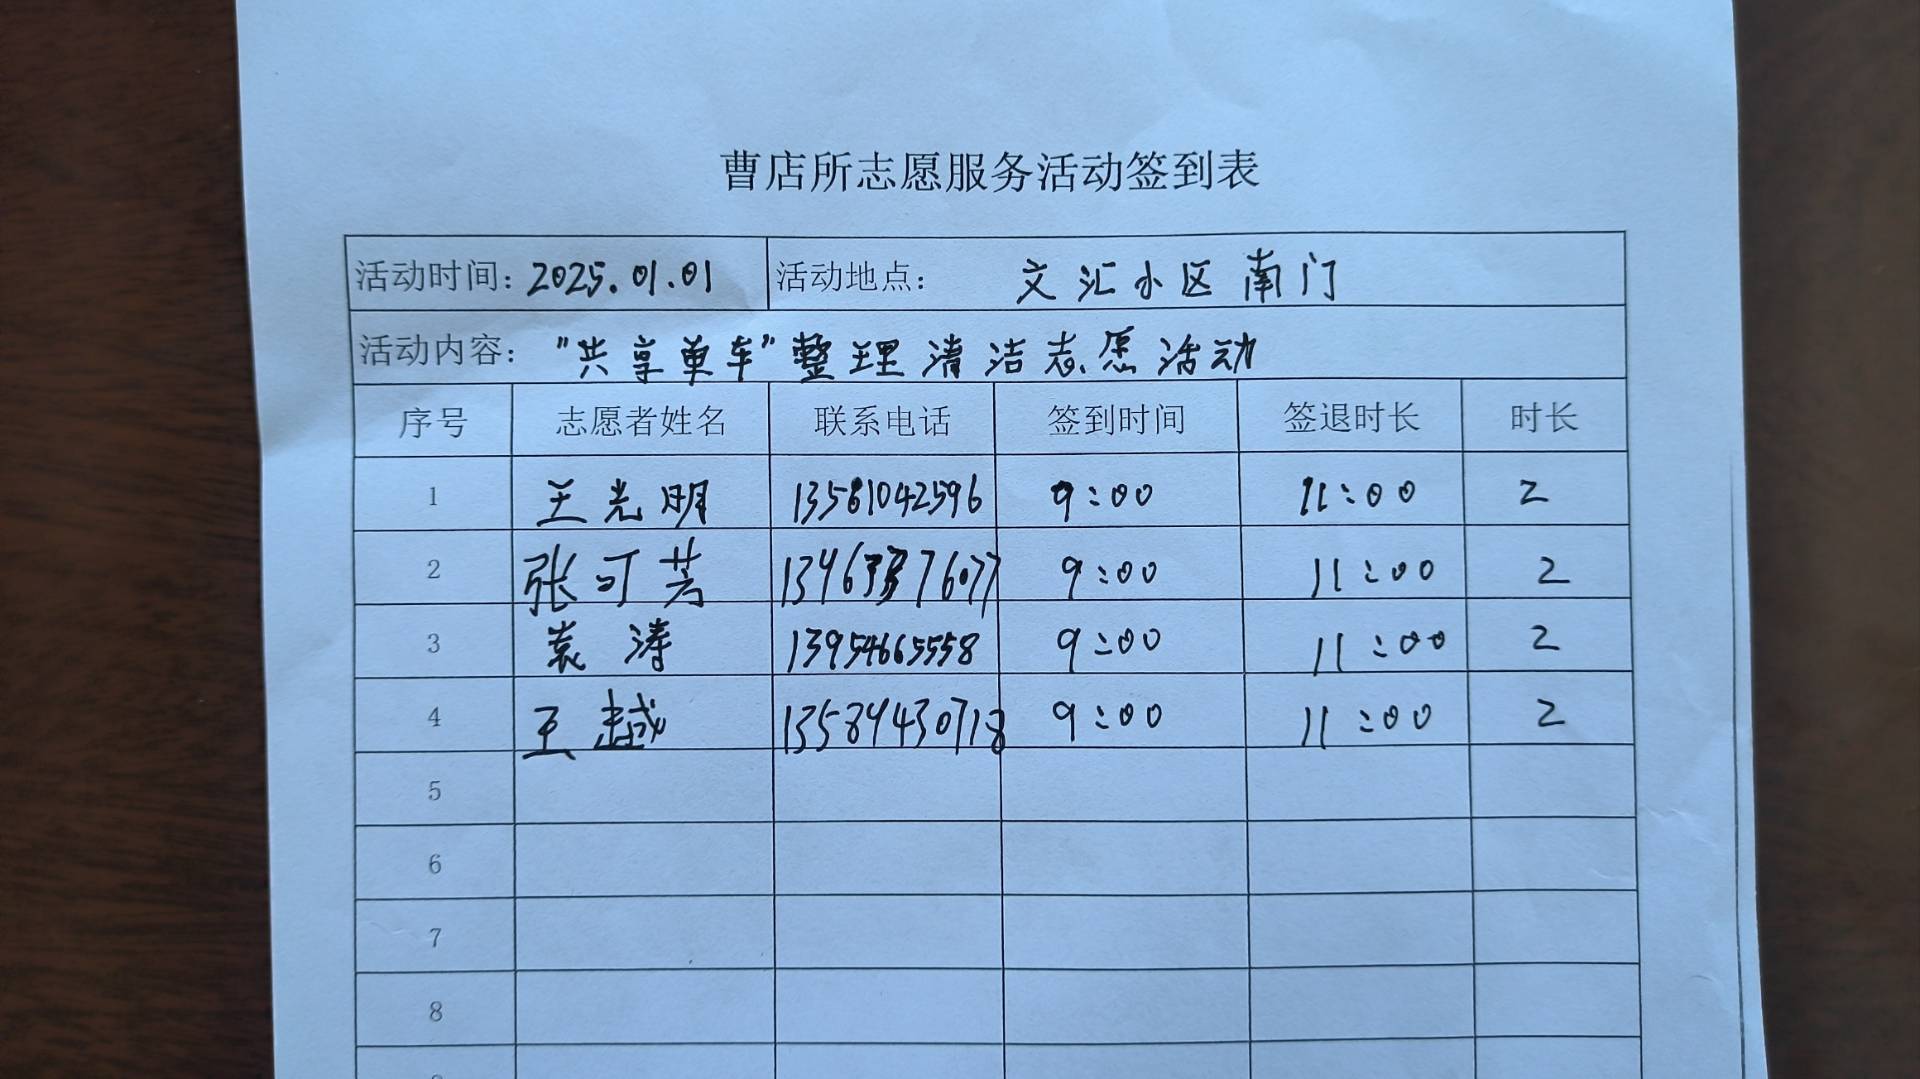 曹店所志愿服务活动签到表
活动时间: 2025.01.01 活动地点: 文汇小区南门
活动内容: "共享单车"整理清洁志愿活动
序号 志愿者姓名 联系电话 签到时间 签退时长 时长
1 王光明 13581042596 9:00 11:00 2
2 张可芳 9:00 11:00 2
3 袁涛 13954665558 9:00 11:00 2
4 王越 13589430718 9:00 11:00 2
5
6
7
8